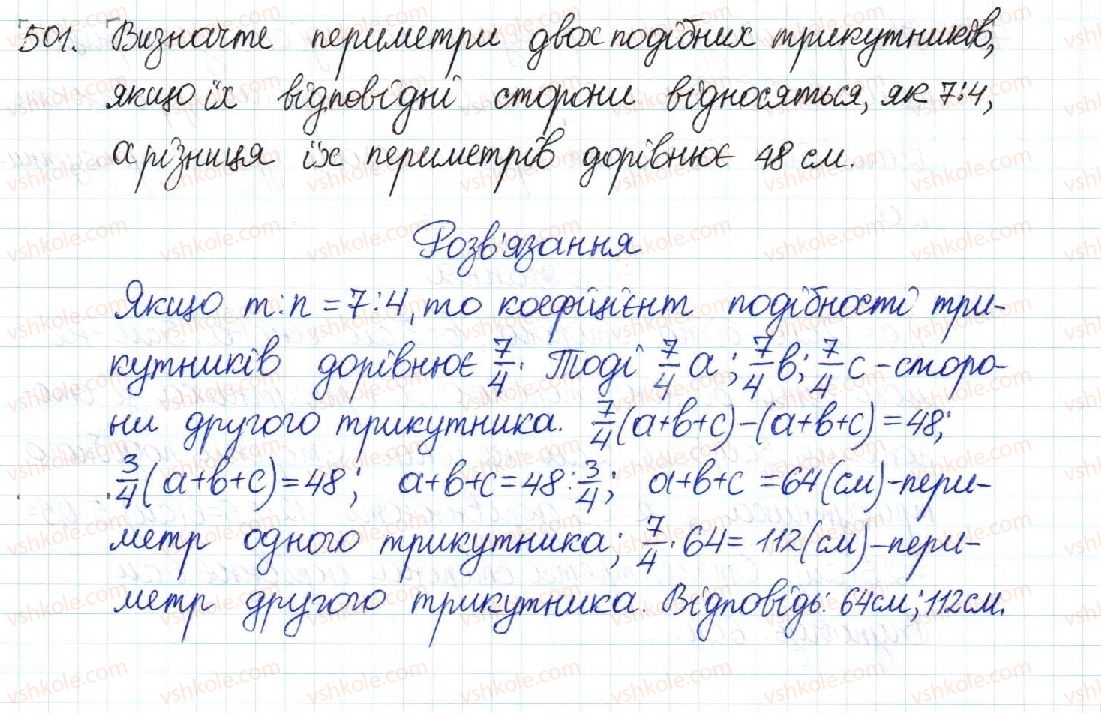 501. Визначте периметри двох подібних трикутників,
якщо їх відповідні сторони відносяться, як 7:4,
а різниця їх периметрів дорівнює 48 см.
Розв'язання
Якщо m:n = 7:4, то коефіцієнт подібності три-
кутників дорівнює 7/4. Тоді 7/4 a; 7/4 b; 7/4 c - сторо-
ни другого трикутника. 7/4 (a+b+c) - (a+b+c) = 48;
3/4 (a+b+c) = 48; a+b+c = 48 : 3/4; a+b+c = 64 (см) - пери-
метр одного трикутника; 7/4 · 64 = 112 (см) - пери-
метр другого трикутника. Відповідь: 64 см; 112 см.